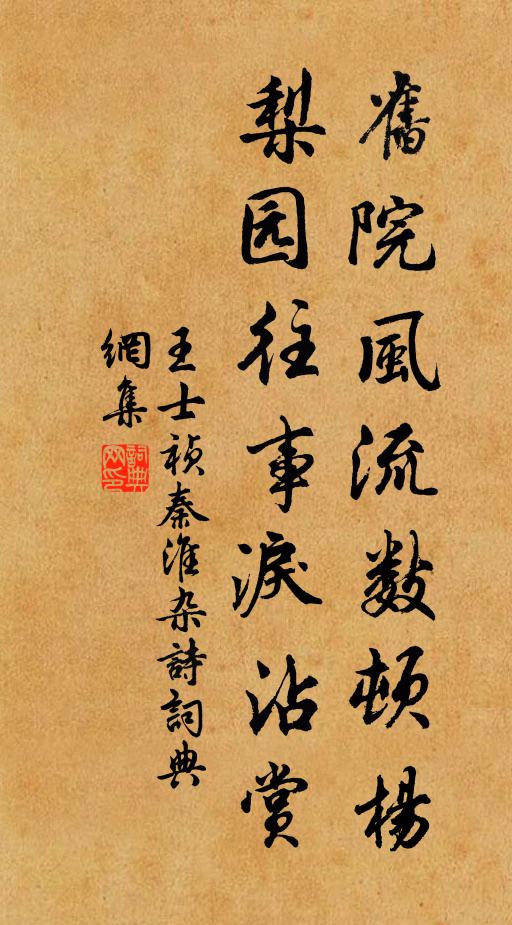 舊院風流數頓楊
梨园往事淚沾賞
王士祯秦淮杂詩詞典
網集
詞典
网印